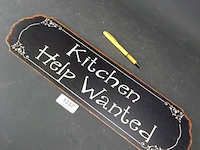 Kitchen
Help Wanted